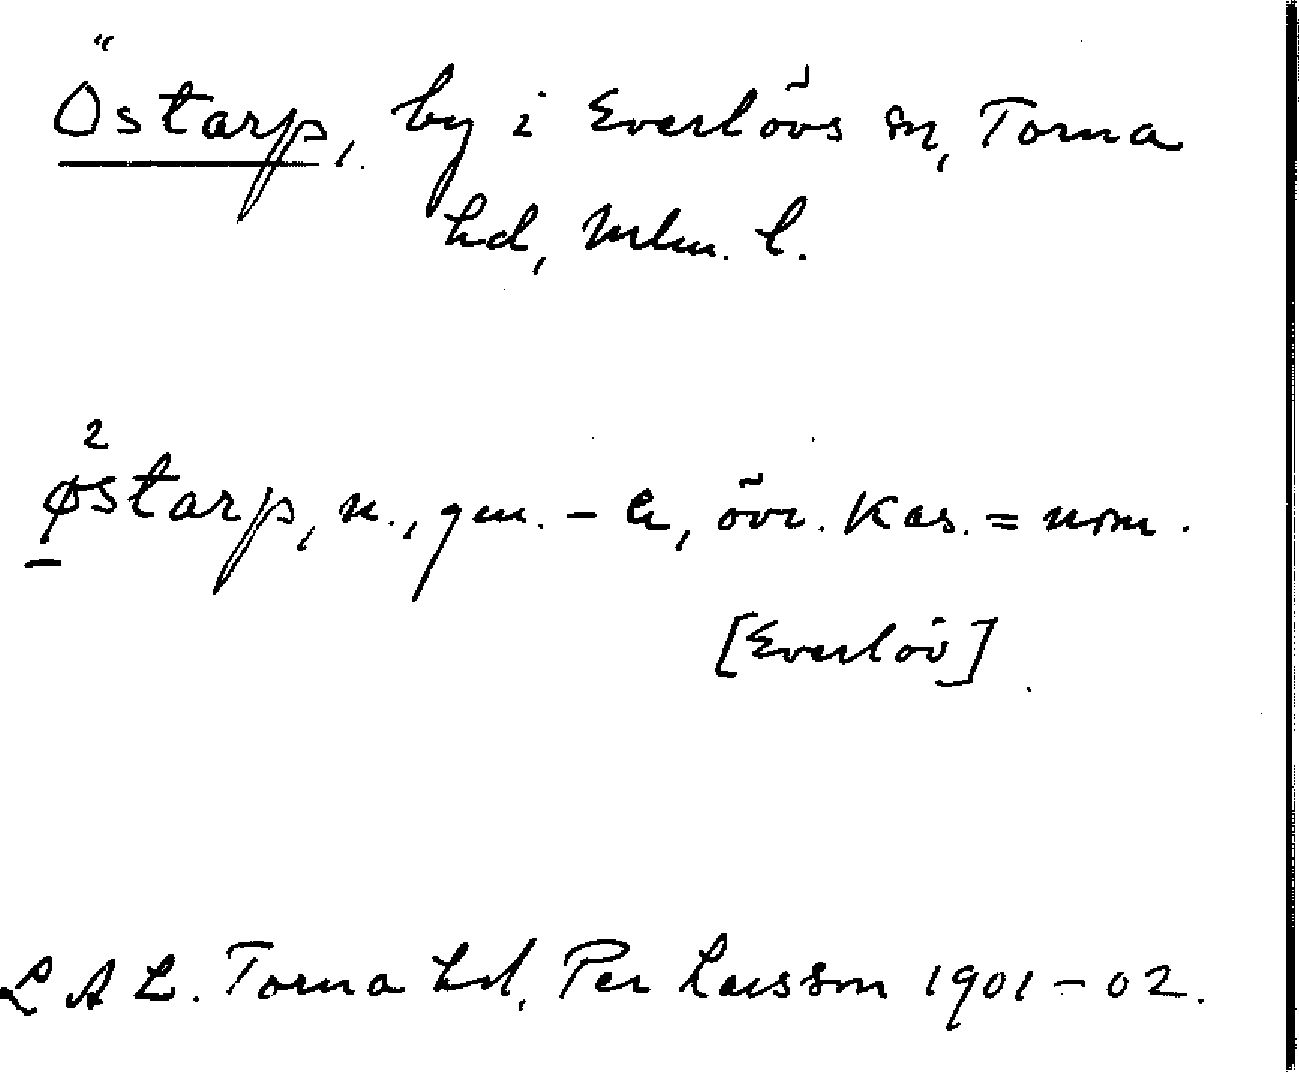 Östarp, by i Everlövs sn, Torna
hd, Mlm. l.
ø²starp, n., gen. - a, övr. Kas. = nom.
[Everlöv]
LAL. Torna hd, Per Larsson 1901-02.